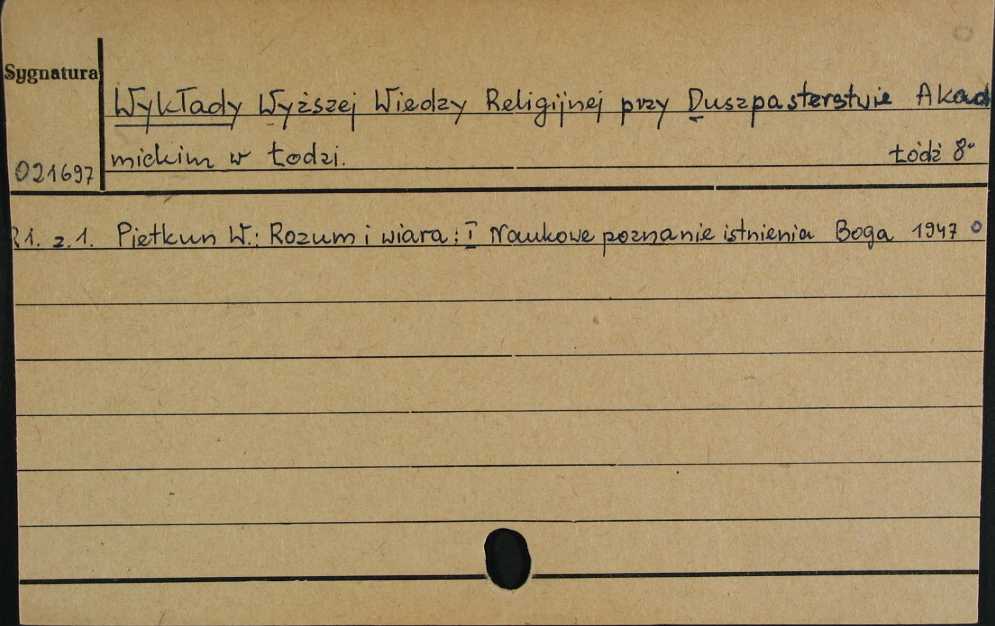 Sygnatura
Wykłady Wyższej Wiedzy Religijnej przy Duszpasterstwie Akad
021697 mickim w Łodzi. Łódź 8°
R1. z.1. Pietkun W.: Rozum i wiara: I Naukowe poznanie istnienia Boga 1947